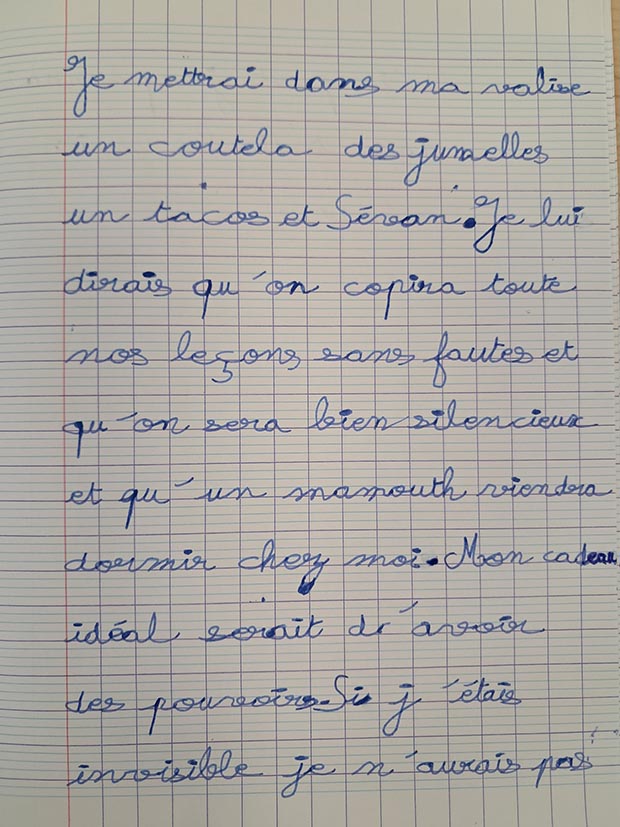 Je mettrai dans ma valise
un coutela des jumelles
un tacos et Sévan. Je lui
dirais qu'on copira toute
nos leçons sans fautes et
qu'on sera bien silencieux
et qu'un mamouth viendra
dormir chez moi. Mon cadeau
idéal serait d'avoir
des pouvoirs. Si j'étais
invisible je n'aurais pas